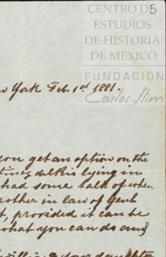 CENTRO DE
ESTUDIOS
DE HISTORIA
DE MÉXICO
FUNDACIÓN
Carlos Slim
5
York Feb. 1st 1881.
you get an option on the
lying in
had some talk of when
brother in law of Genl
, provided it can be
what you can do and